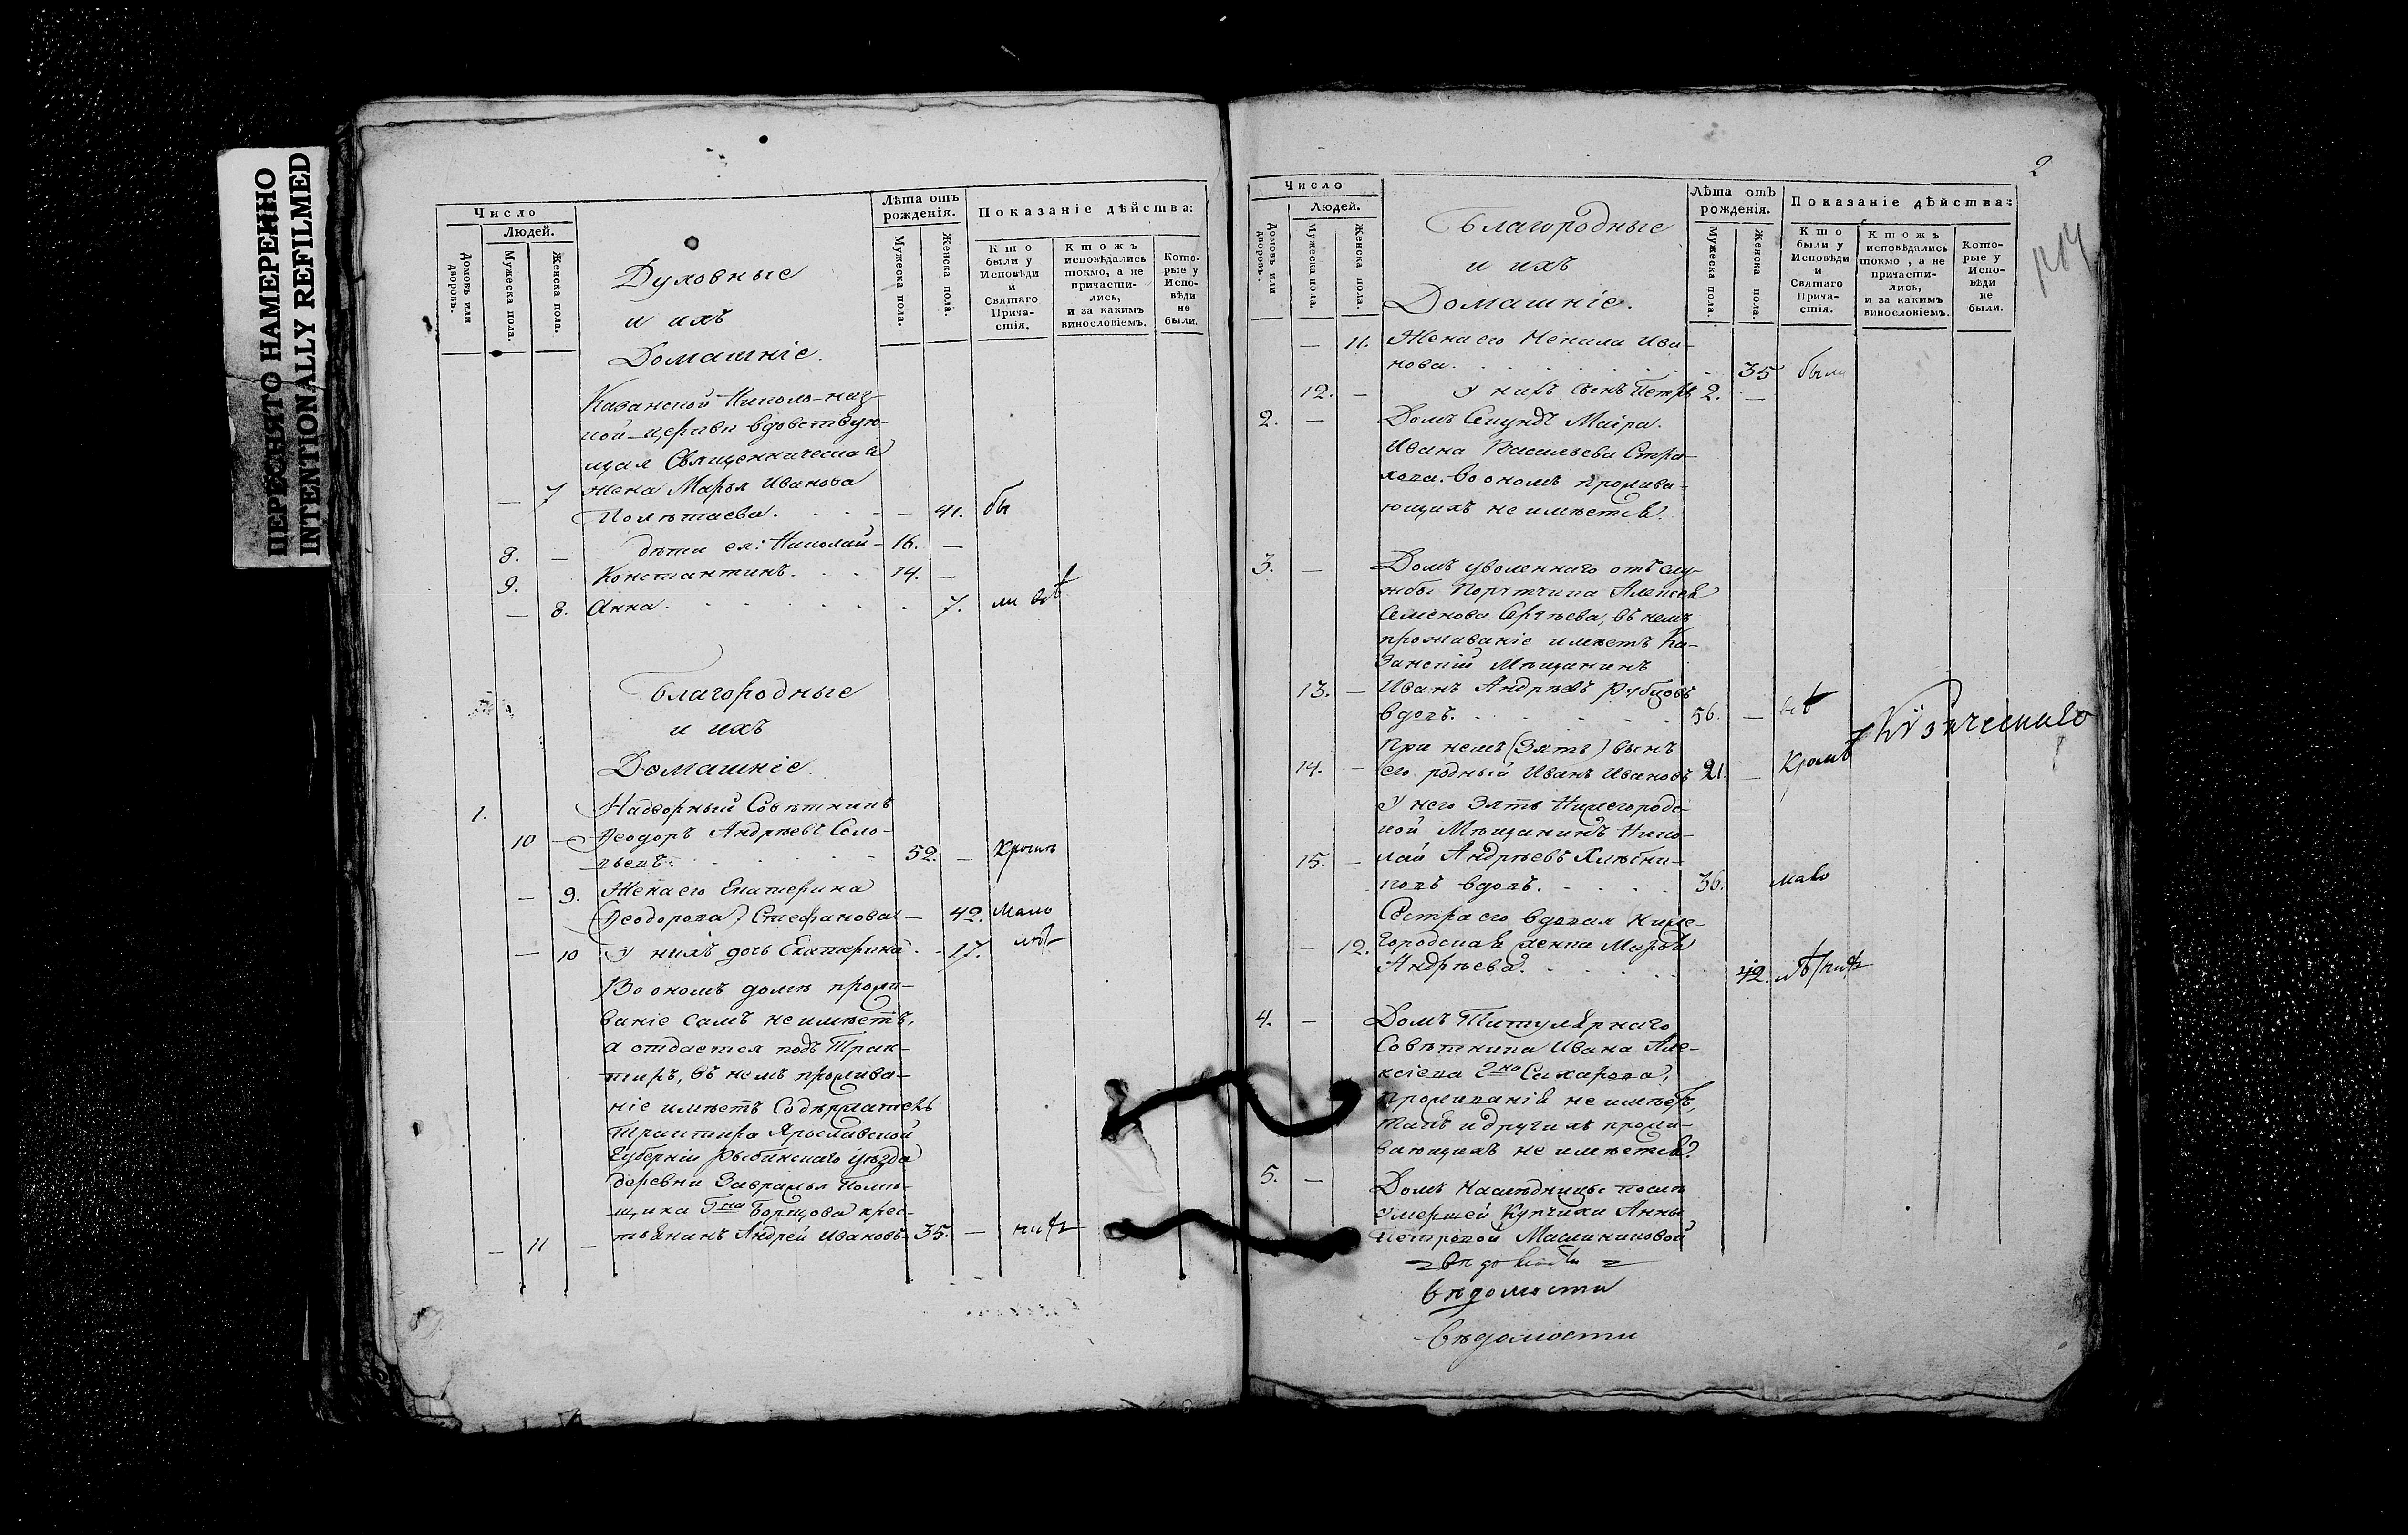 ПЕРЕСНЯТО НАМЕРЕННО
INTENTIONALLY REFILMED
Число
Людей.
Домовъ или дворовъ.
Мужеска пола.
Женска пола.
Духовные
и ихъ
Домашніе.
Лѣта отъ рожденія.
Мужеска пола.
Женска пола.
Показаніе дѣйства:
Кто были у Исповѣди и Святаго Прича-стія.
Ктожъ исповѣдались токмо, а не причасти-лись, и за какимъ винословіемъ.
Кото-рые у Испо-вѣди не были.
Казанской Николо-низ-
кой церкви вдовствую-
щая Священническая
— 7 жена Марья Иванова
Полѣтаева. — 41. бы
8. — дѣти ея: Николай — 16. —
9. Константинъ. 14. —
— 8. Анна. 7. ли всѣ
Благородные
и ихъ
Домашніе.
1. Надворный Совѣтникъ
10 — Ѳеодоръ Андрѣевъ Соло-
вьевъ. 52. — кромѣ
— 9. Жена его Екатерина
(Ѳеодорова) Стефанова — 42. мало
— 10 У нихъ дочь Екатерина 17. лѣт
Во ономъ домѣ прожи-
ваніе самъ не имѣетъ,
а отдается подъ Трак-
тиръ, въ немъ прожива-
ніе имѣетъ Содержатель
трактира Ярославской
Губерніи Рыбинскаго уѣзда
деревни Завражья помѣ-
щика Г-на Борщова крес-
— 11 — тьянинъ Андрей Ивановъ 35. — нихъ
2
Число
Людей.
Домовъ или дворовъ.
Мужеска пола.
Женска пола.
Благородные
и ихъ
Домашніе.
Лѣта отъ рожденія.
Мужеска пола.
Женска пола.
Показаніе дѣйства:
Кто были у Исповѣди и Святаго Прича-стія.
Ктожъ исповѣдались токмо, а не причасти-лись, и за какимъ винословіемъ.
Кото-рые у Испо-вѣди не были.
— 11. Жена его Ненила Ива-
нова. 35 были
12. — У нихъ сынъ Петръ 2. —
2. — Домъ Секундъ Маіора
Ивана Васильева Стра-
хова. Во ономъ прожива-
ющихъ не имѣется.
3. — Домъ уволеннаго отъ слу-
жбы Порутчика Алексѣя
Семенова Сергѣева, въ немъ
проживаніе имѣетъ Ка-
занскій мѣщанинъ
13. — Иванъ Андрѣевъ Рубцовъ
вдовъ. 56. — всѣ
При немъ (Зять) сынъ
14. — его родный Иванъ Ивановъ 21. — кромѣ
У него Зять Нижегородс-
кой мѣщанинъ Нико-
15. — лай Андрѣевъ Хлѣбни-
ковъ вдовъ. 36. мало
Сестра его вдовая Ниже-
— 12. городская женка Марья
Андрѣева. 42. лѣтнихъ
4. — Домъ Титулярнаго
Совѣтника Ивана Але-
ксіева Г-на Сахарова,
проживанія не имѣетъ,
такъ и другихъ прожи-
вающихъ не имѣется.
5. — Домъ наслѣдницы послѣ
умершей Купчихи Анны
Петровой Масленниковой
вѣдомости
вѣдомости